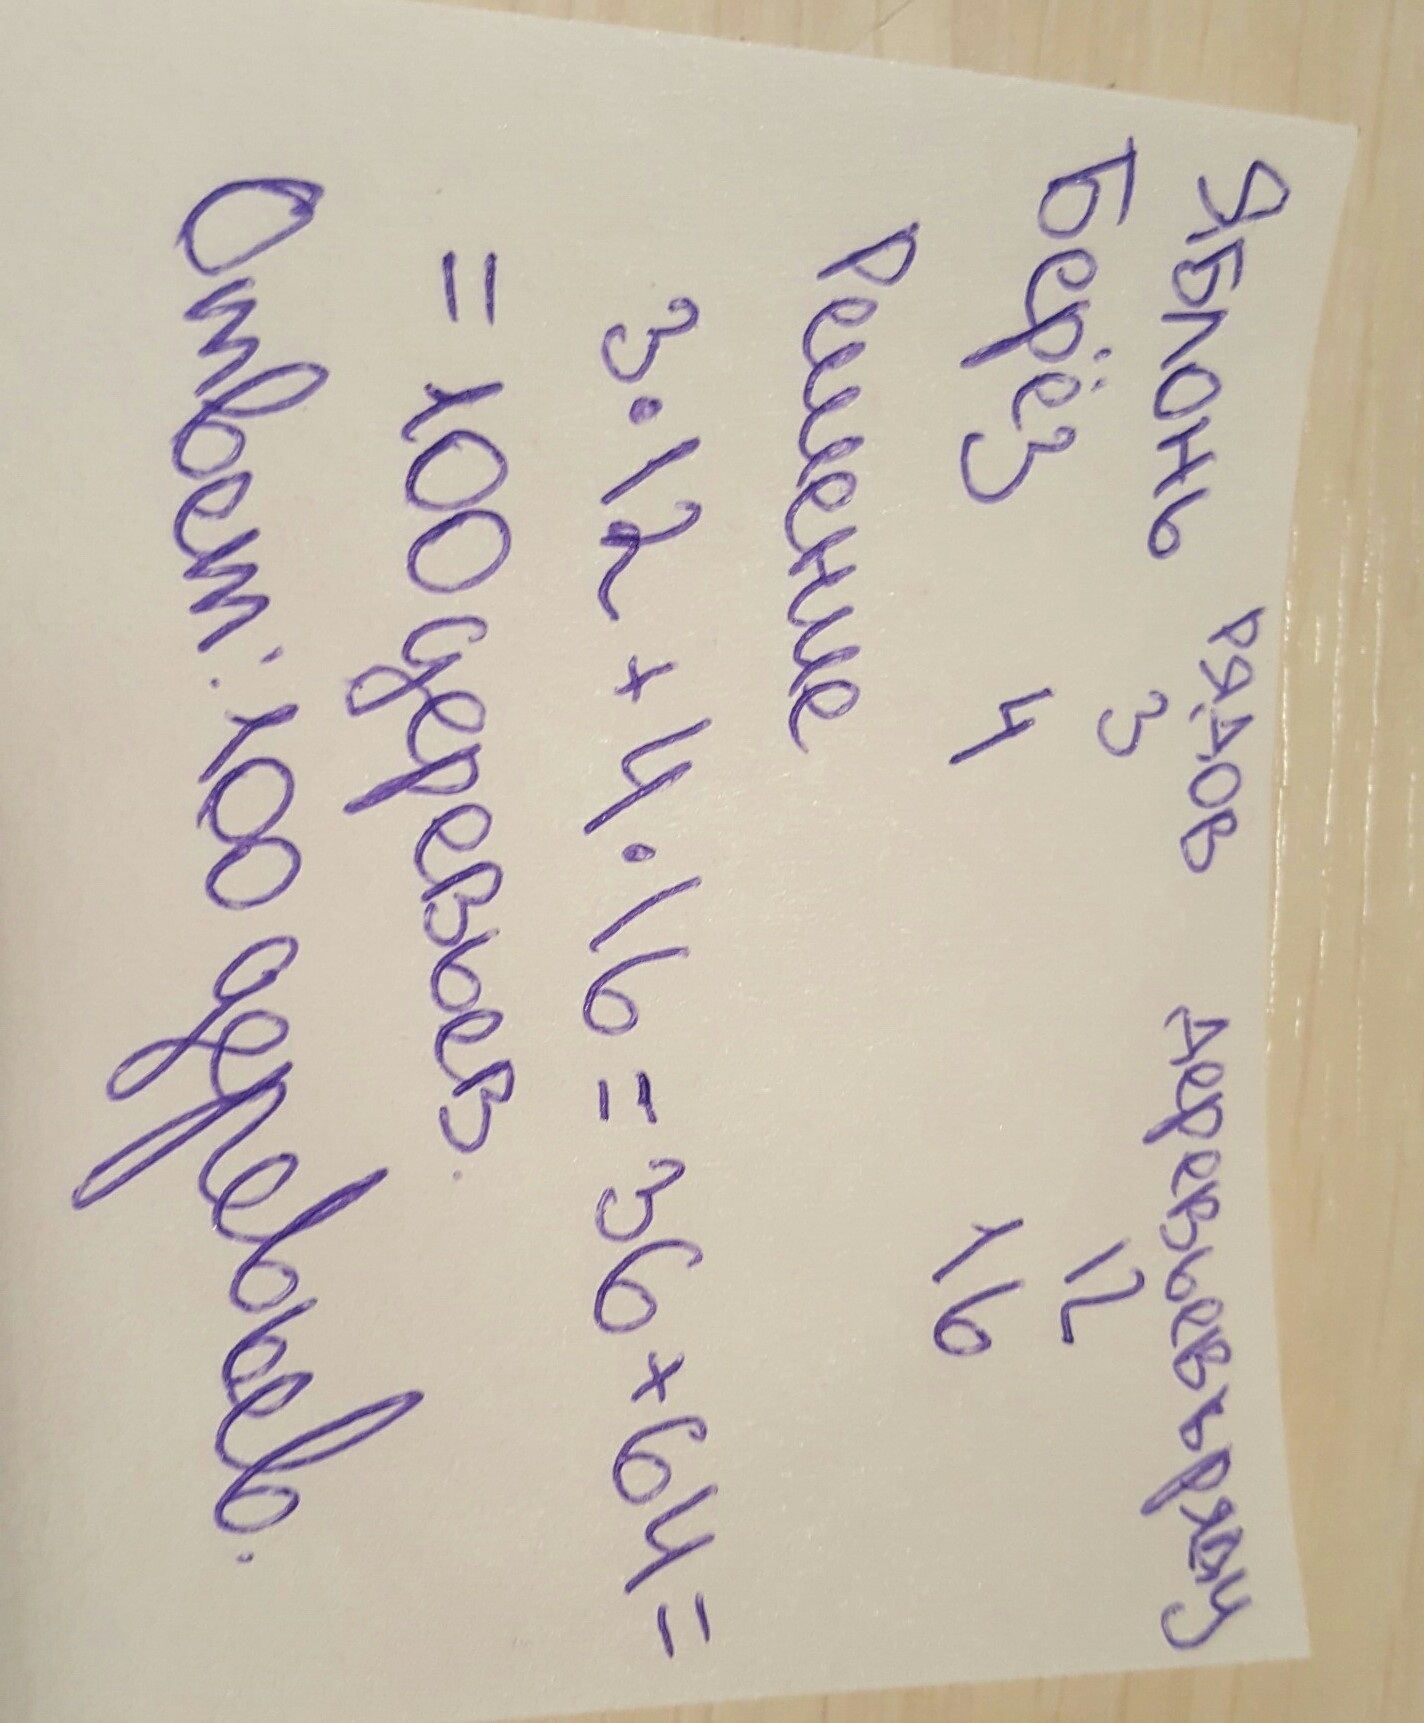 Яблонь рядов деревьев в ряду
3 12
Берёз 4 16
Решение
3·12+4·16=36+64=
=100 деревьев.
Ответ: 100 деревьев.